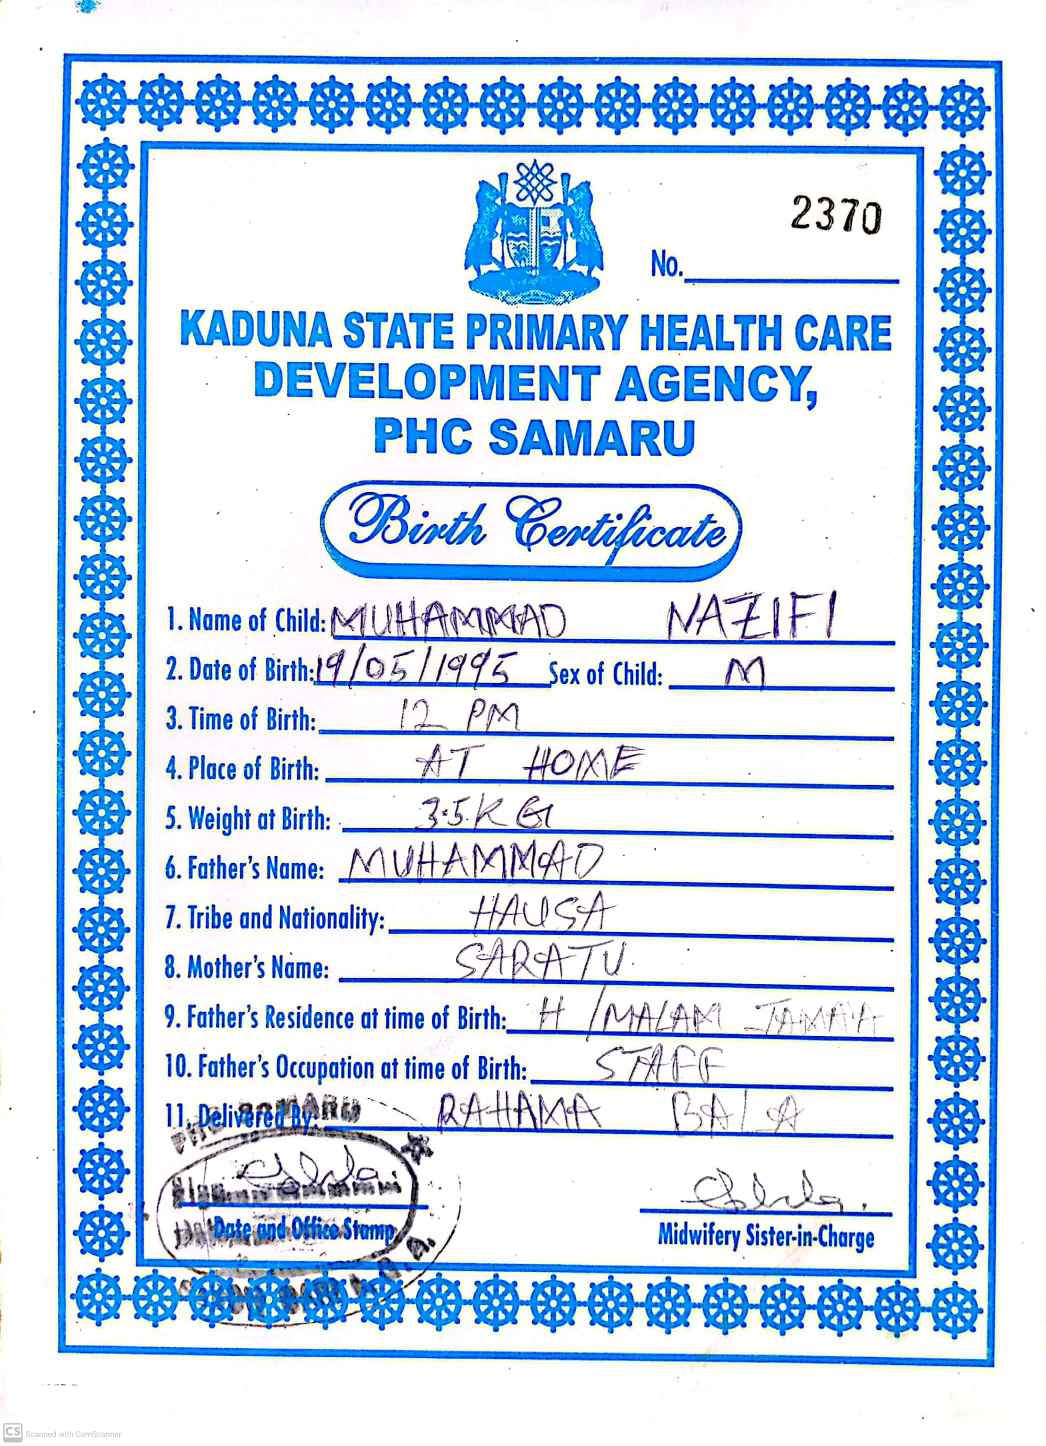 2370
No.
KADUNA STATE PRIMARY HEALTH CARE
DEVELOPMENT AGENCY,
PHC SAMARU
Birth Certificate
1. Name of Child: MUHAMMAD NAZIFI
2. Date of Birth: 19/05/1995 Sex of Child: M
3. Time of Birth: 12 PM
4. Place of Birth: AT HOME
5. Weight at Birth: 3.5KG
6. Father's Name: MUHAMMAD
7. Tribe and Nationality: HAUSA
8. Mother's Name: SARATU
9. Father's Residence at time of Birth: H/MALAM JAMA'A
10. Father's Occupation at time of Birth: STAFF
11. Delivered By: RAHAMA BALA
PHC SAMARU
Date and Office Stamp
Midwifery Sister-in-Charge
CS Scanned with CamScanner